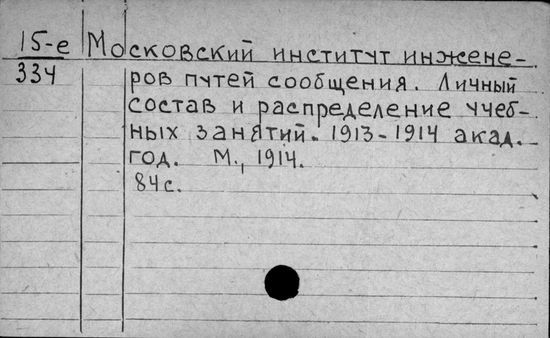 15-е Московский институт инжене-
334 ров путей сообщения. Личный
состав и распределение учеб-
ных занятий. 1913-1914 акад.
год. М., 1914.
84 с.